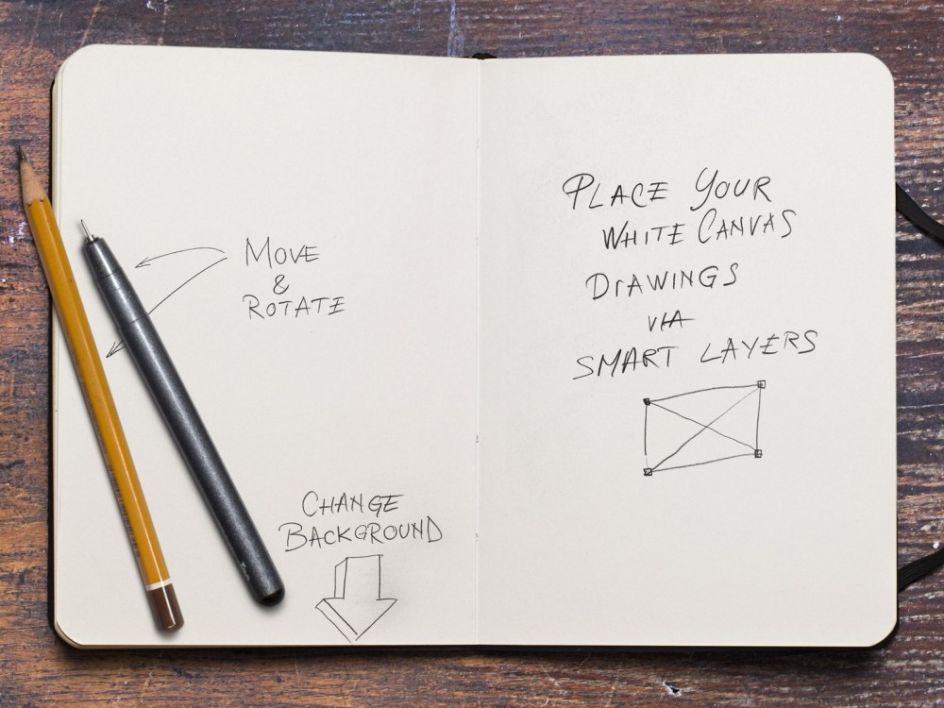 MOVE
&
ROTATE
CHANGE
BACKGROUND
PLACE YOUR
WHITE CANVAS
DRAWINGS
VIA
SMART LAYERS